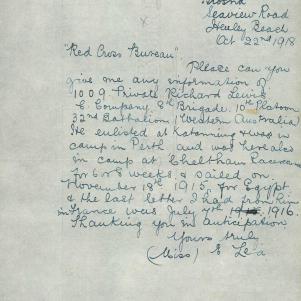 Seaview Road
Henley Beach
Oct 22nd 1918
"Red Cross Bureau"
Please can you
give me any information of
1009 Private Richard Lewis
C Company 8th Brigade 10th Platoon
32nd Battalion (Western Australia)
He enlisted at Katanning & was in
camp in Perth and was here also
in camp at Cheltham Racecourse
for 6 or 8 weeks & sailed on
November 18th 1915, for Egypt
& the last letter I had from him
in France was July 4th 1916.
Thanking you in anticipation
Yours truly
(Miss) E